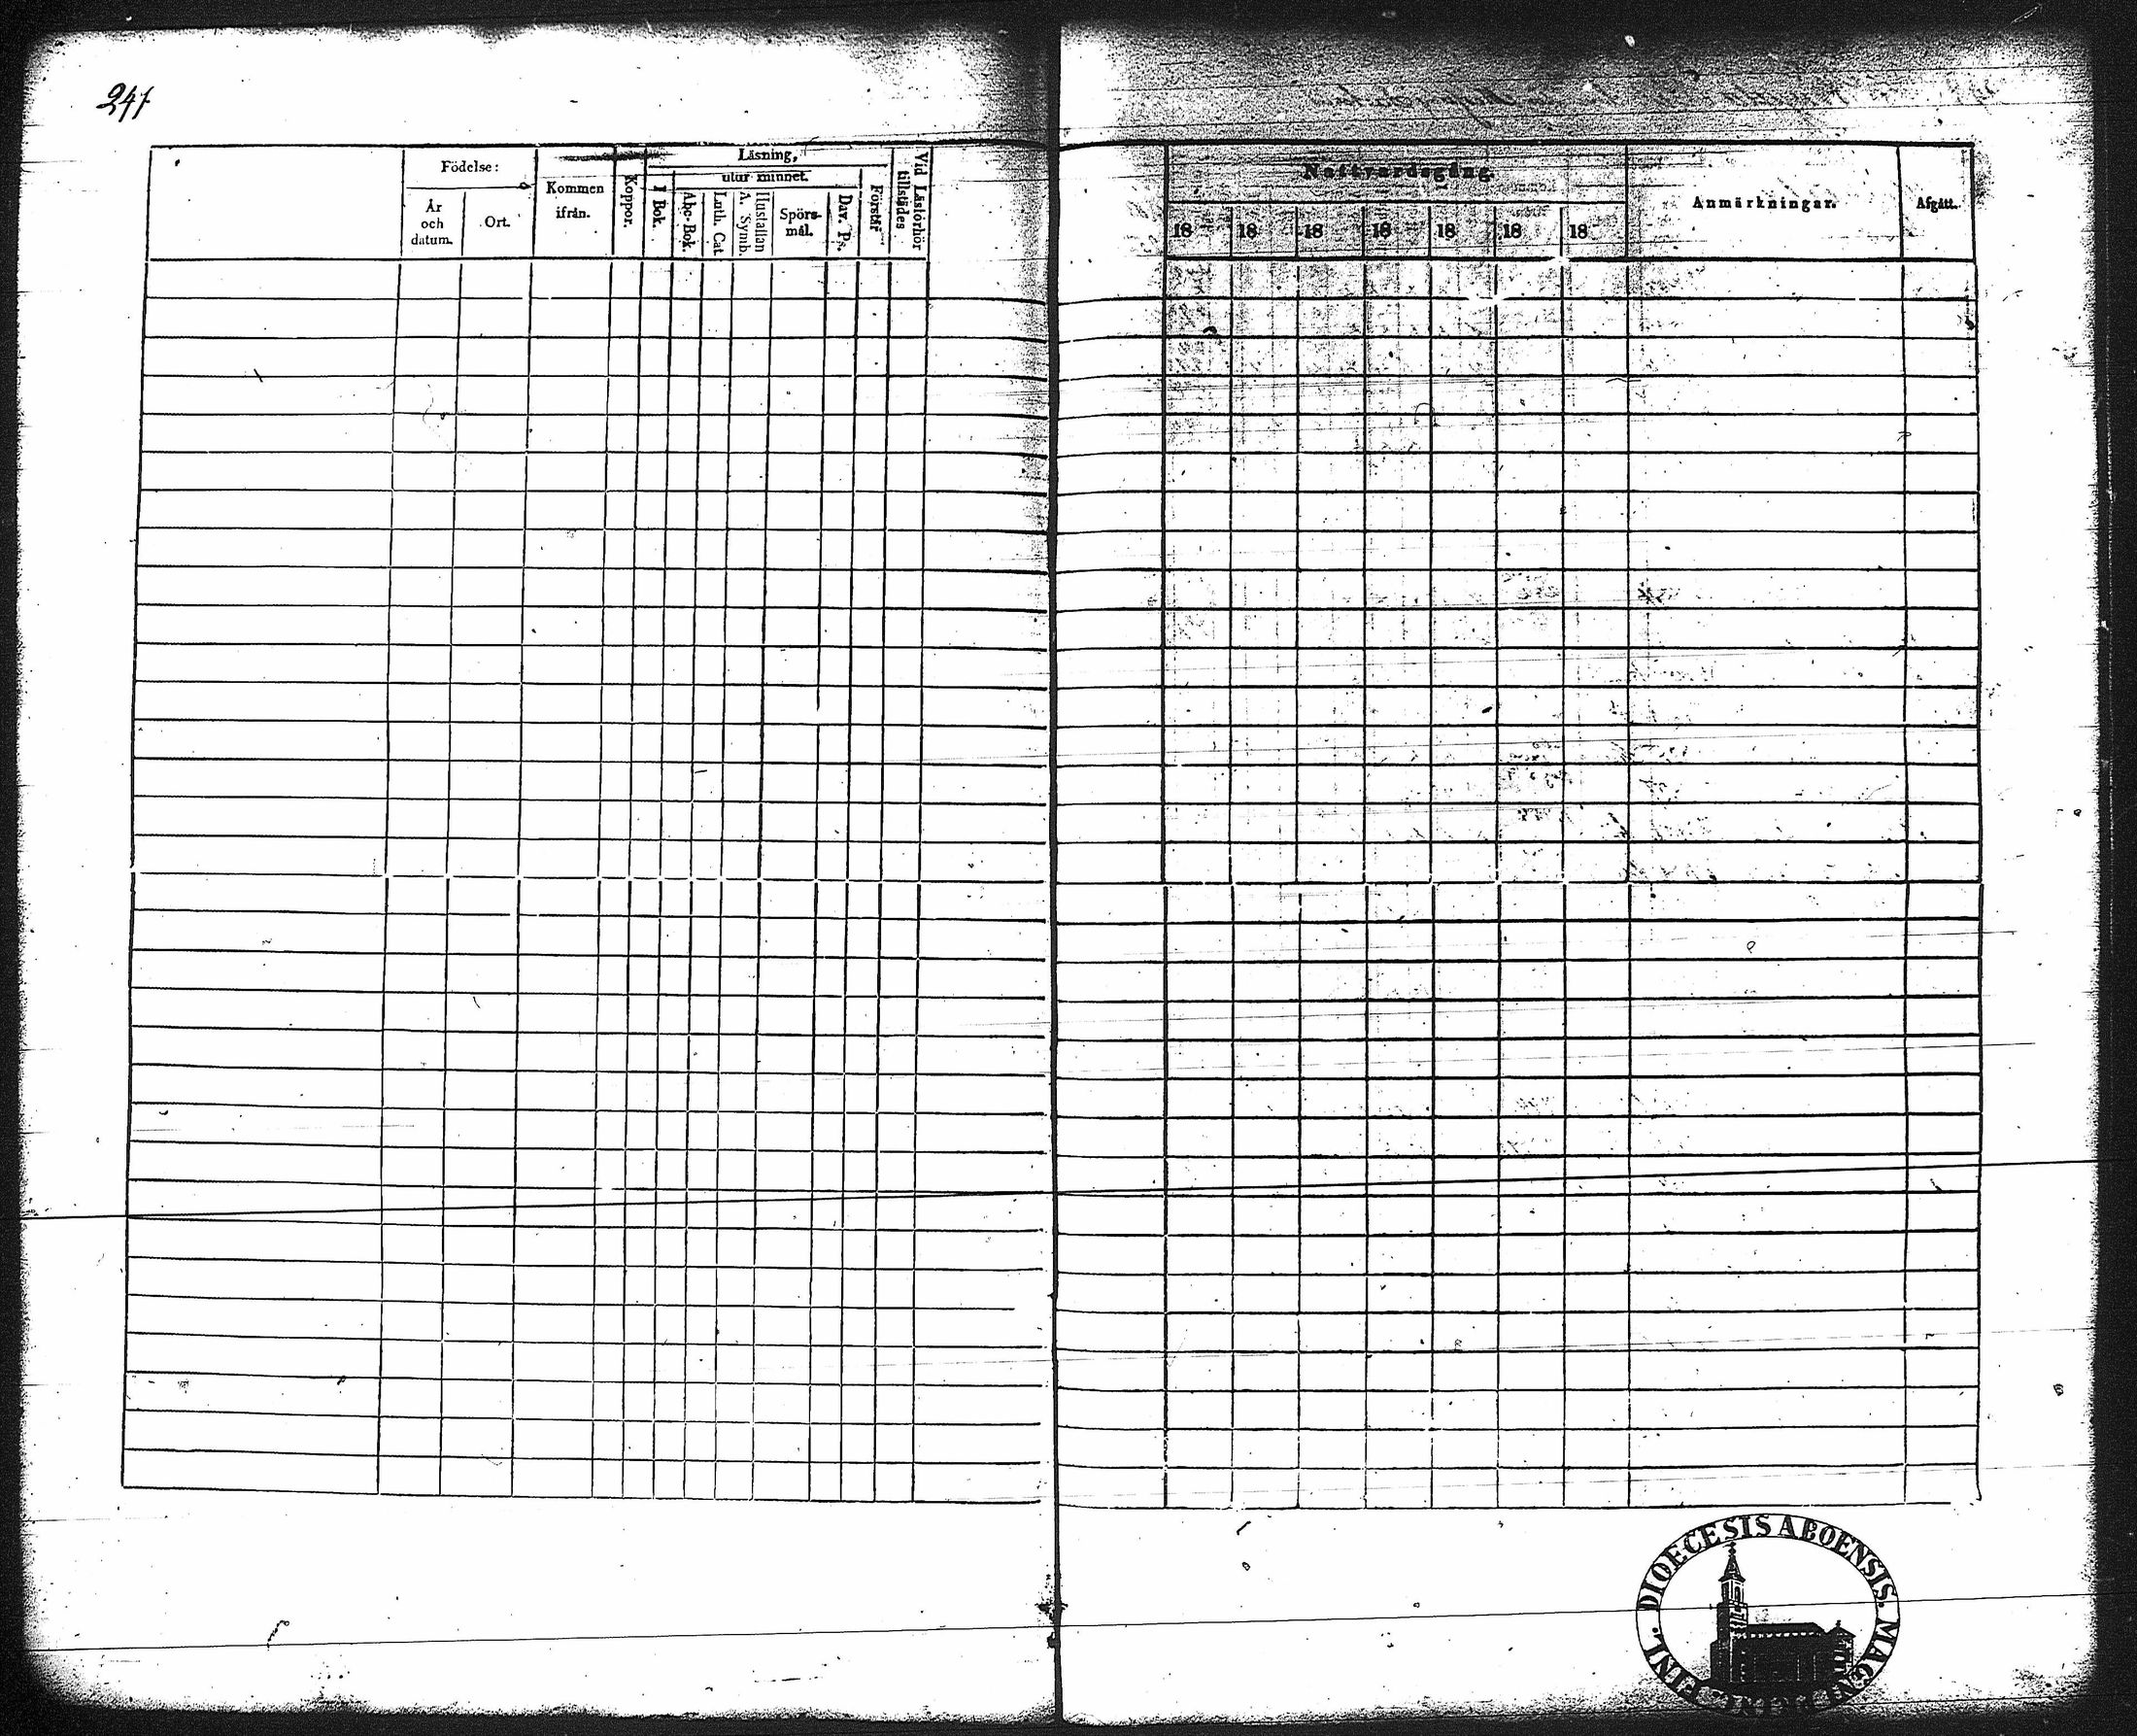 241
Födelse:
År
och
datum.
Ort.
Kommen
ifrån.
Koppor.
Läsning,
utur minnet.
I Bok.
Abc-Bok.
Luth. Cat.
Hustaflan
A. Symb.
Spörs-
mål.
Dav. Ps.
Förstår
Vid Läsförhör
tillstädes
Nattvardsgång.
18 18 18 18 18 18 18
Anmärkningar.
Afgått.
DIOECESIS ABOENSIS. MAGNI
FINL.